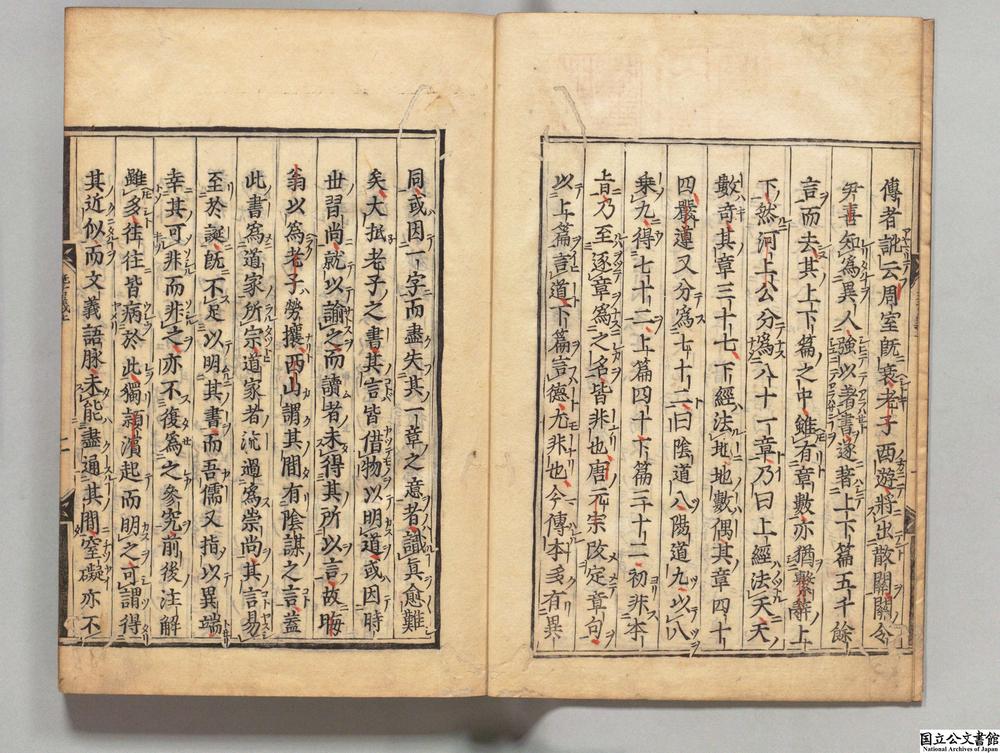 傳者訛云周室既衰老子西遊將出散關關令
尹喜知爲異人強以著書遂著上下篇五千餘
言而去其上下篇之中雖有章數亦猶繫辭上
下然河上公分爲八十一章乃曰上經法天天
數竒其章三十七下經法地地數偶其章四十
四嚴遵又分爲七十二曰陰道八陽道九以八
乗九得七十二上篇四十下篇三十二初非本
旨乃至逐章爲之名皆非也唐元宗改定章句
以上篇言道下篇言德尤非也今傳本多有異
同或因一字而盡失其一章之意者識真愈難
矣大抵老子之書其言皆借物以明道或因時
世習尚就以諭之而讀者未得其所以言故晦
翁以爲老子勞攘西山謂其間有陰謀之言盖
此書爲道家所宗道家者流過爲崇尚其言易
至於誕既不足以明其書而吾儒又指以異端
幸其可非而非之亦不復爲之參究前後注解
雖多往往皆病於此獨頴濱起而明之可謂得
其近似而文義語脉未能盡通其間窒礙亦不
国立公文書館
National Archives of Japan